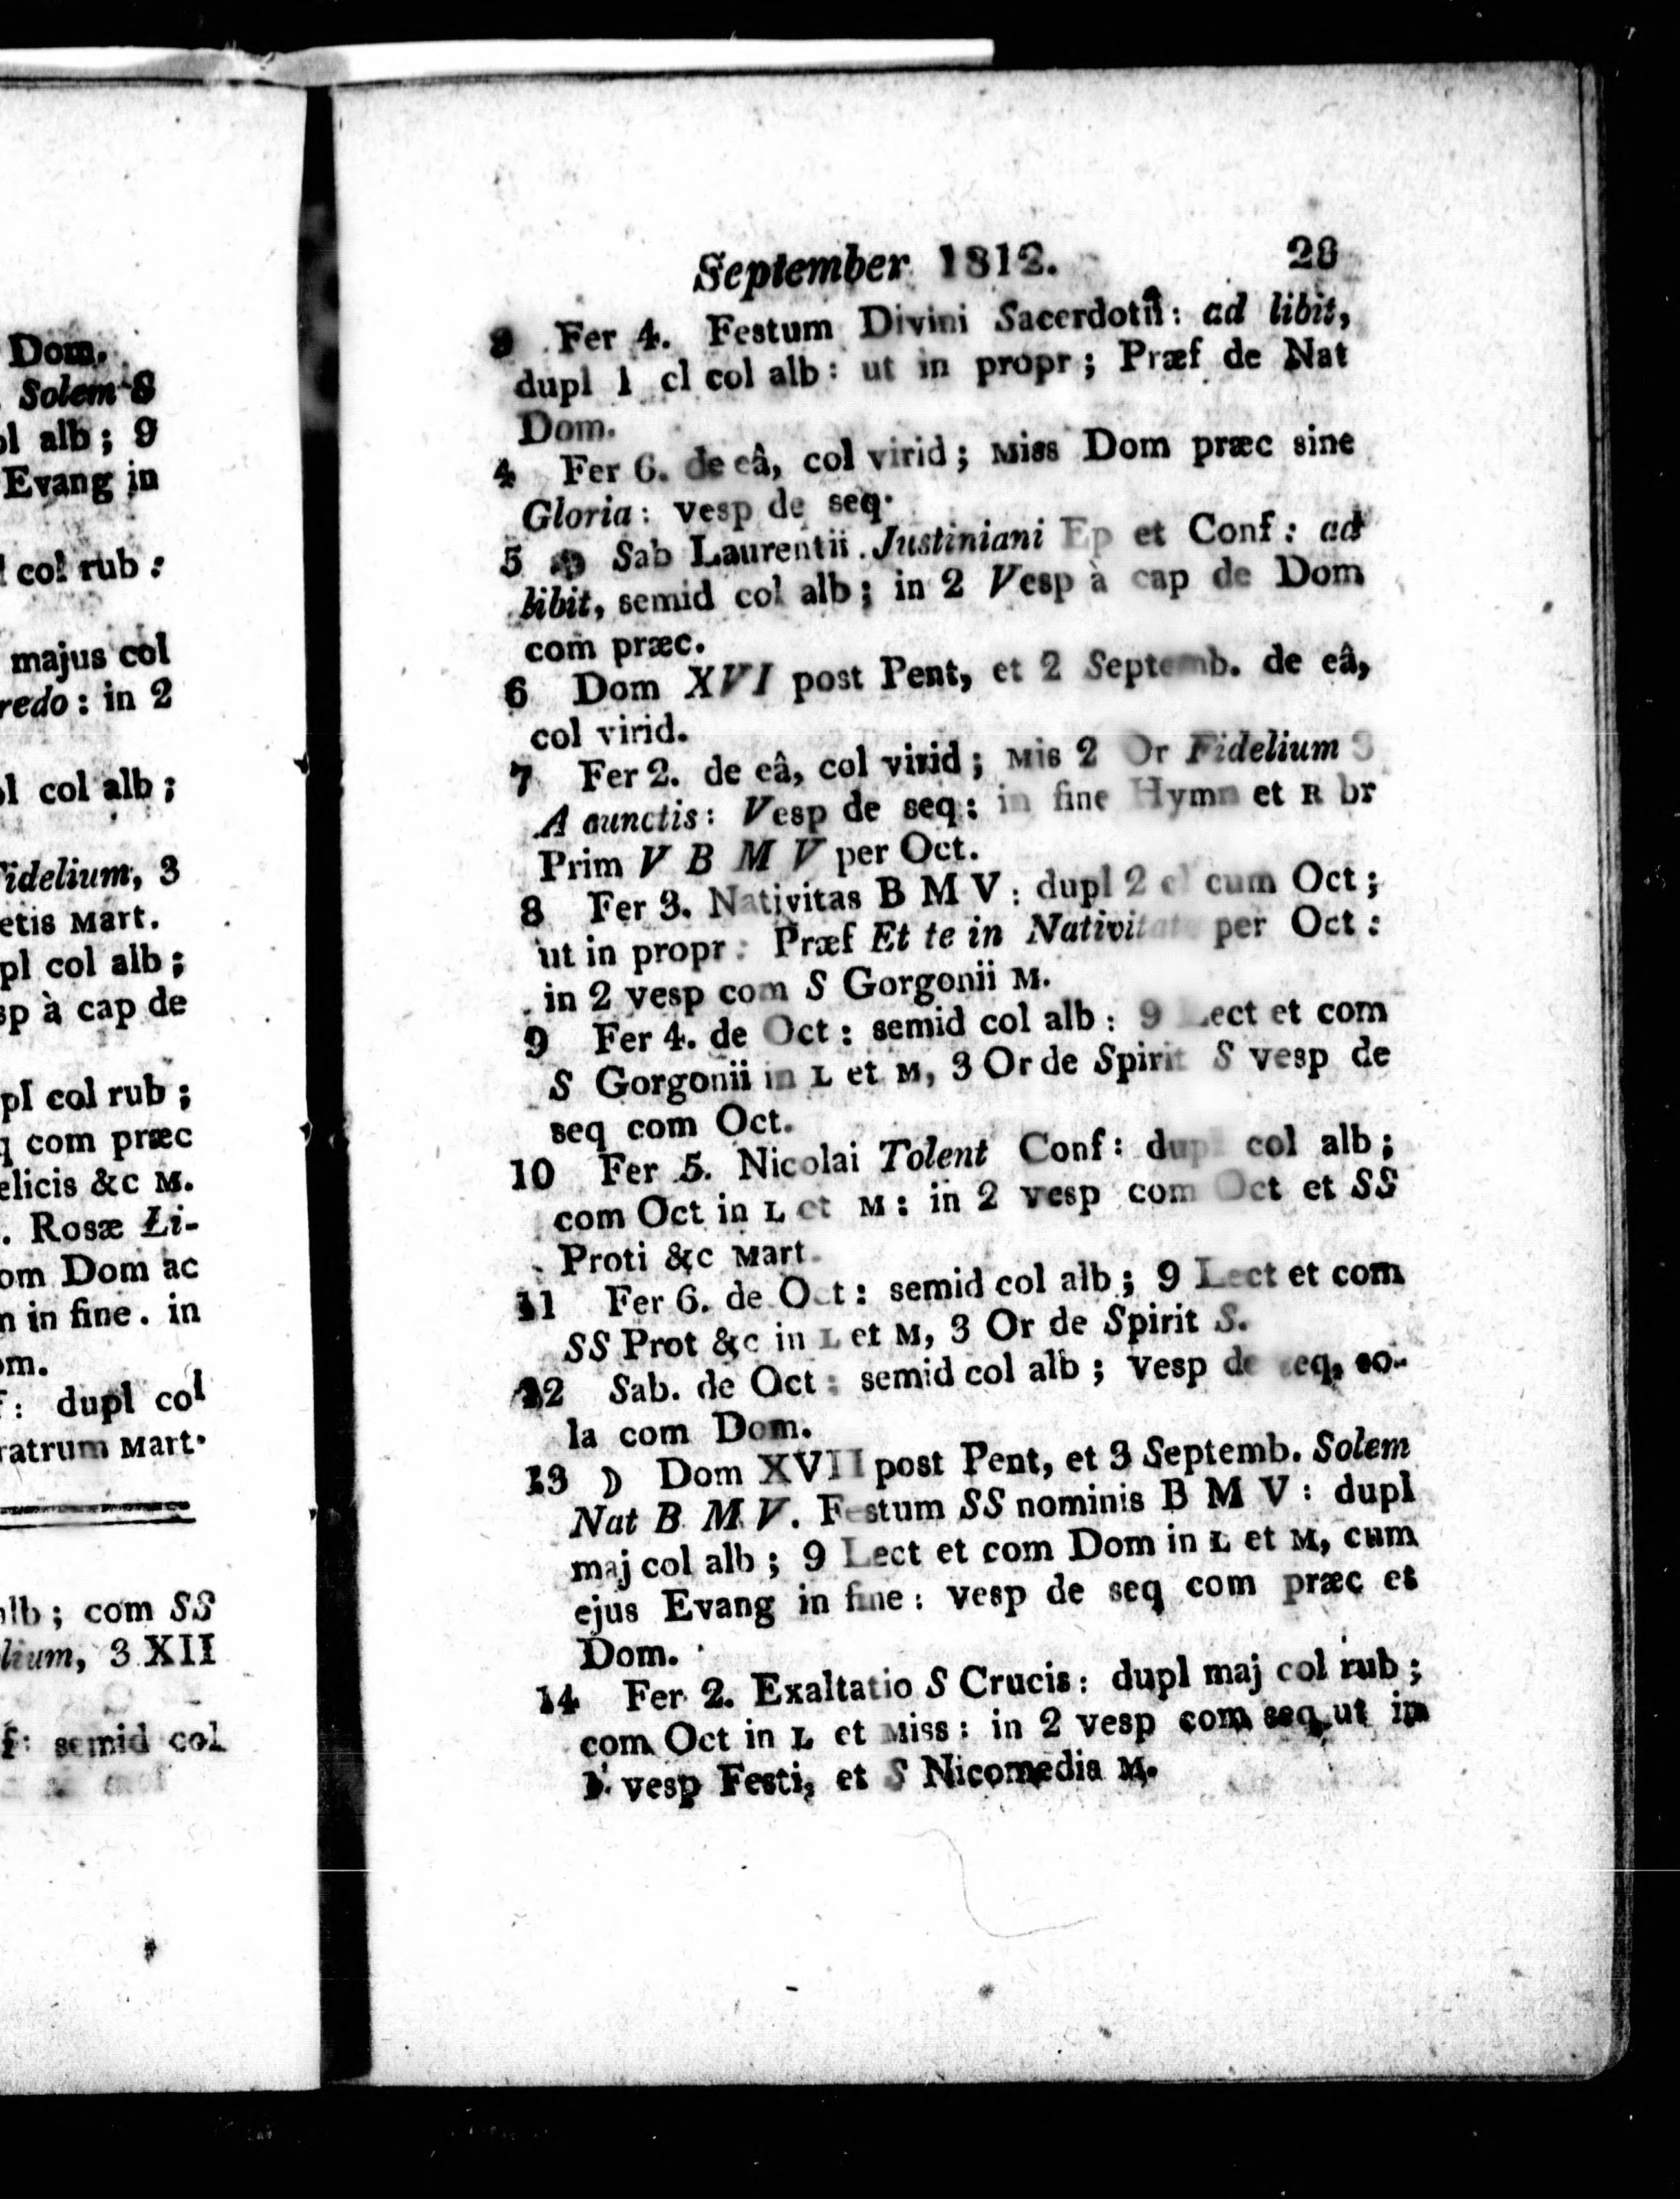 Dom.
Solem 8
ol alb; 9
Evang in
l col rub:
majus col
redo: in 2
ol col alb;
Fidelium, 3
etis Mart.
pl col alb;
sp à cap de
pl col rub;
q com præc
elicis &c M.
. Rosæ Li-
om Dom ac
n in fine. in
om.
f: dupl col
ratrum Mart.
alb; com SS
lium, 3 XII
f: semid col
September 1812. 28
3 Fer 4. Festum Divini Sacerdotii: ad libit,
dupl 1 cl col alb: ut in propr; Præf de Nat
Dom.
4 Fer 6. de eâ, col virid; Miss Dom præc sine
Gloria: vesp de seq.
5 Sab Laurentii Justiniani Ep et Conf: ad
libit, semid col alb; in 2 Vesp à cap de Dom
com præc.
6 Dom XVI post Pent, et 2 Septemb. de eâ,
col virid.
7 Fer 2. de eâ, col virid; Mis 2 Or Fidelium 3
A cunctis: Vesp de seq: in fine Hymn et R br
Prim V B M V per Oct.
8 Fer 3. Nativitas B M V: dupl 2 cl cum Oct;
ut in propr: Præf Et te in Nativitate per Oct:
in 2 vesp com S Gorgonii M.
9 Fer 4. de Oct: semid col alb: 9 Lect et com
S Gorgonii in L et M, 3 Or de Spirit S vesp de
seq com Oct.
10 Fer 5. Nicolai Tolent Conf: dupl col alb;
com Oct in L et M: in 2 vesp com Oct et SS
Proti &c Mart.
11 Fer 6. de Oct: semid col alb; 9 Lect et com
SS Prot &c in L et M, 3 Or de Spirit S.
12 Sab. de Oct: semid col alb; vesp de seq, so-
la com Dom.
13 ☽ Dom XVII post Pent, et 3 Septemb. Solem
Nat B M V. Festum SS nominis B M V: dupl
maj col alb; 9 Lect et com Dom in L et M, cum
ejus Evang in fine: vesp de seq com præc et
Dom.
14 Fer 2. Exaltatio S Crucis: dupl maj col rub;
com Oct in L et Miss: in 2 vesp com seq ut in
1. vesp Festi, et S Nicomedis M.